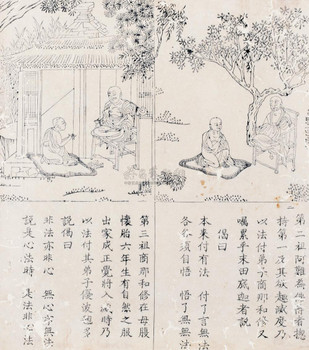 第二祖阿難
持第一 其 趣滅度乃
以法付弟子商那和修又
囑累乎末田底迦者說
偈曰
本來付有法 付了言無法
各各須自悟 悟了無無法
第三祖商那和修在母腹
懷胎六年生有自然之服
出家成正覺將入滅時乃
以法付其弟子優波毱多
說偈曰
非法亦非心 無心亦無法
說是心法時 是法非心法